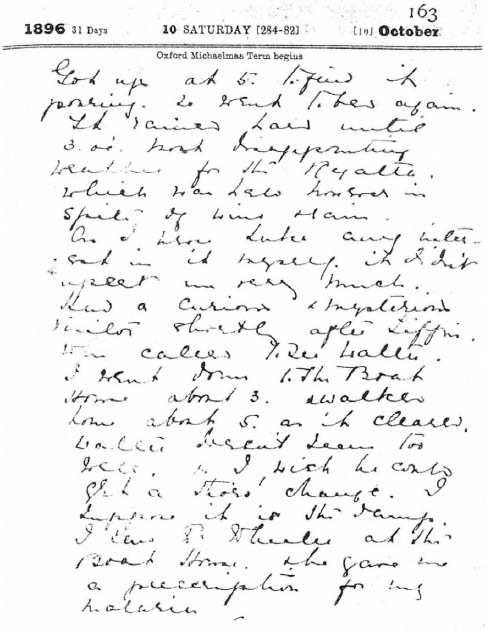 163
1896 31 Days 10 SATURDAY [284-82] [10] October
Oxford Michaelmas Term begins
Got up at 5. to find it
pouring. so went to bed again.
It rained hard until
3. oc. most disappointing
weather for the Regatta.
which was held however in
spite of wind & rain.
As I have taken any inter-
est in it myself. it didn't
upset me very much.
Had a curious & mysterious
visitor shortly after Tiffin.
who called to see Walter.
I went down to the Boat
House about 3. & walked
home about 5. as it cleared.
Walter doesn't seem too
well. & I wish he could
get a change. I
suppose it is the damp.
I saw Dr Wheeler at the
Boat House. & he gave me
a prescription for my
malaria